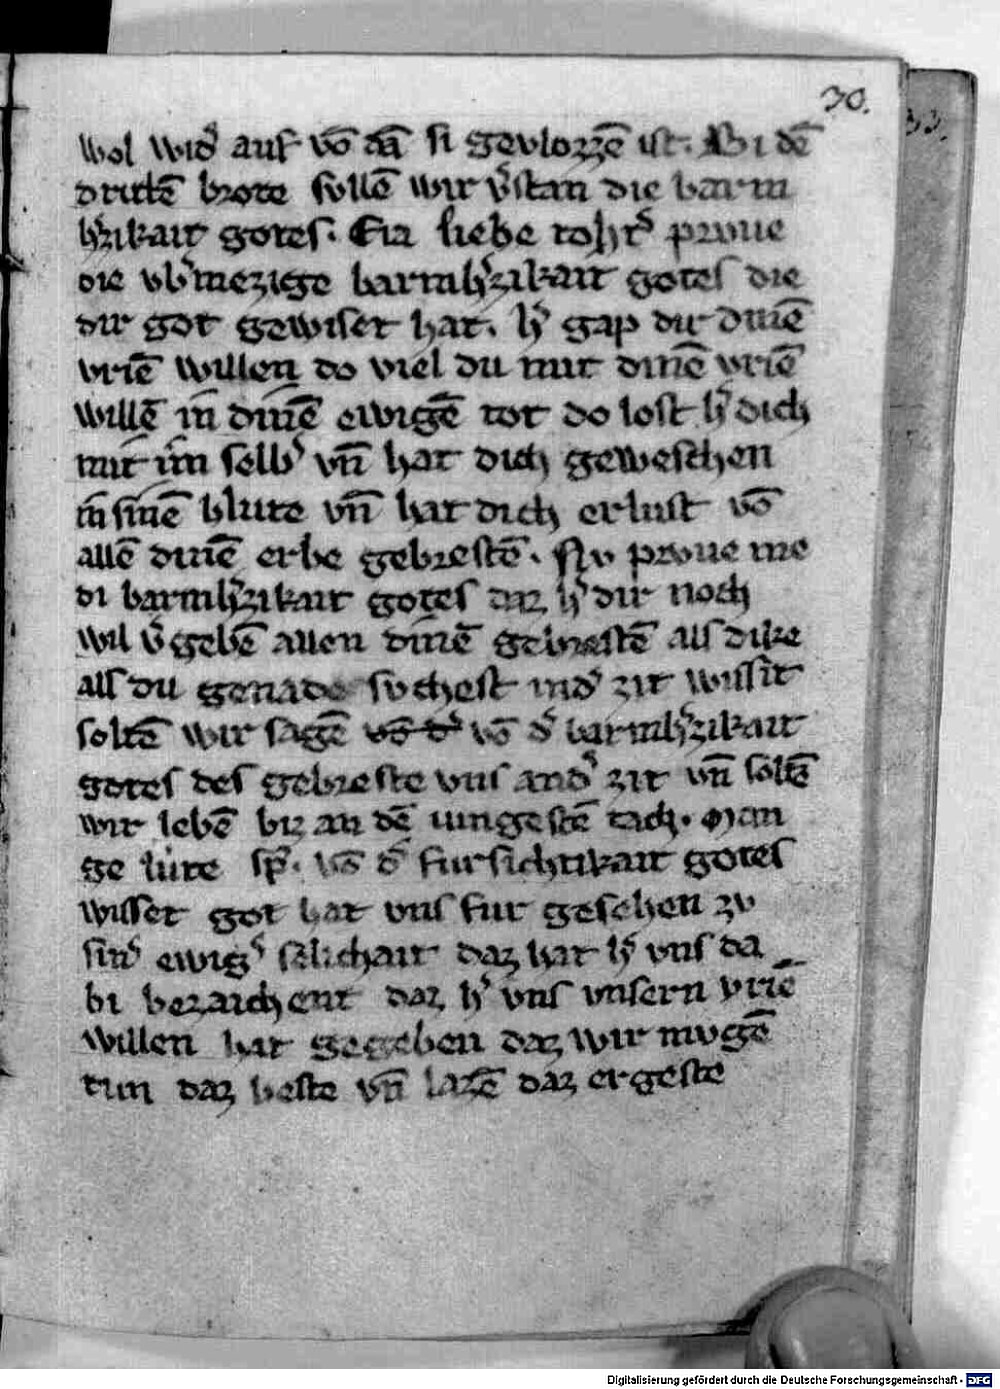 30.
33.
wol wid᷑ auf vō dā si gevlozzē ist. Bi dē
drittē brote svllē wir v᷑stan die barm
h᷑zikait gotes. Eia liebe toht᷑ prvue
die vb᷑mezige barmh᷑zikait gotes die
dir got gewiset hat. h᷑ gap dir dinē
vriē willen do viel du mit dinē vriē
willē in̄ dinē ewigē tot do lost h᷑ dich
mit im selb᷑ vn̄ hat dich geweschen
in̄ sinē blute vn̄ hat dich erlust vō
allē dinē erbe gebrestē. Nv prvue me
di barmh᷑zikait gotes daz h᷑ dir noch
wil v᷑gebē allen dinē gebrestē als dike
als du genade svchest ind᷑ zit wissit
soltē wir sagē vō d᷑ vō d᷑ barmh᷑zikait
gotes des gebreste vns and᷑ zit vn̄ soltē
wir lebē biz an dē iungestē tach. Man
ge lute sp᷑. vō d᷑ fursichtikait gotes
wisset got hat vns fur gesehen zv
sin᷑ ewig᷑ selichait daz hat h᷑ vns da
bi bezaichent daz h᷑ vns vnsern vriē
willen hat gegeben daz wir mvgē
tun daz beste vn̄ lazē daz ergeste
Digitalisierung gefördert durch die Deutsche Forschungsgemeinschaft - DFG